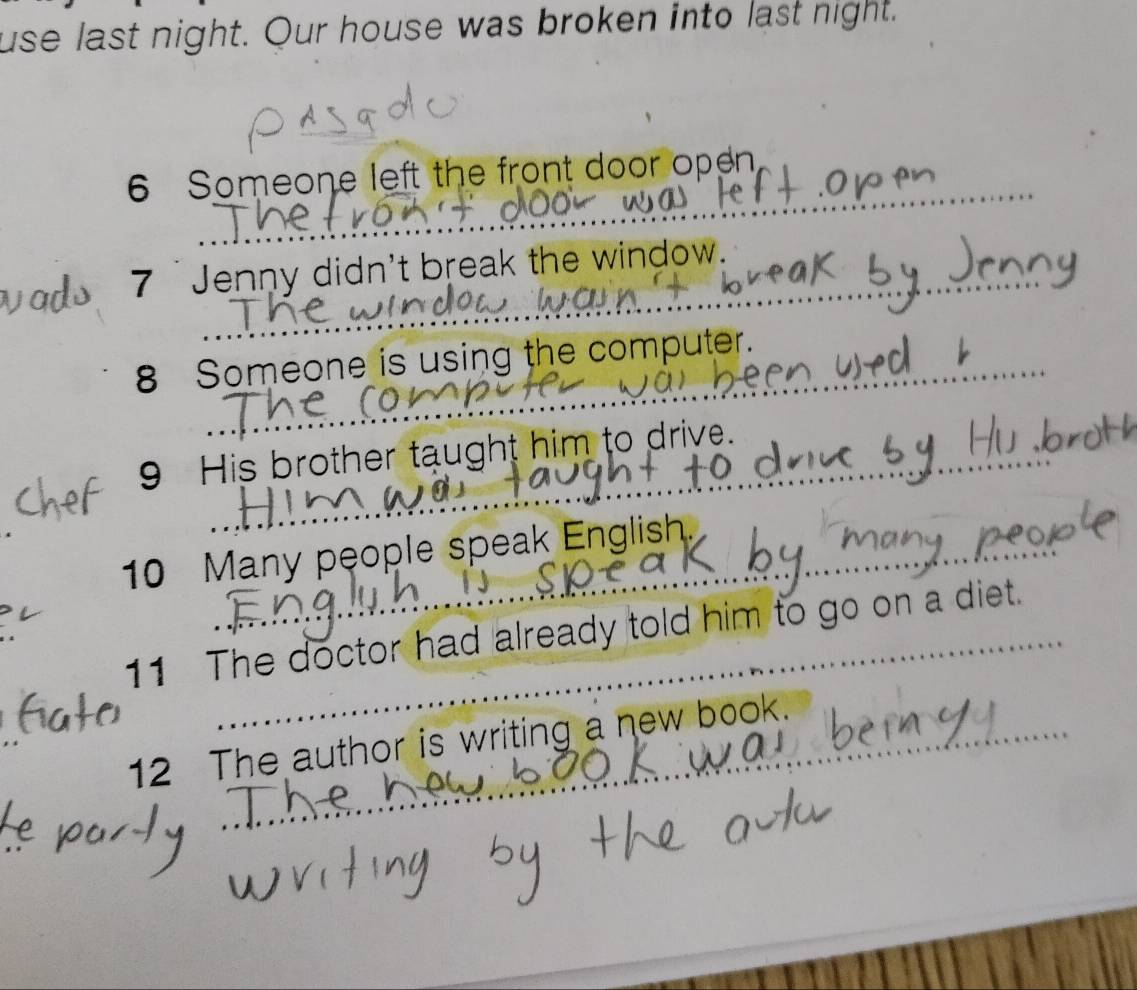 use last night. Our house was broken into last night.
pasado
6 Someone left the front door open.
The fron't door was left open
7 Jenny didn't break the window.
The window wasn't break by Jenny
8 Someone is using the computer.
The computer was been used
9 His brother taught him to drive.
chef
Him was taught to drive by His broth
10 Many people speak English.
English is speak by many people
11 The doctor had already told him to go on a diet.
12 The author is writing a new book.
The new book was being
party
writing by the autor